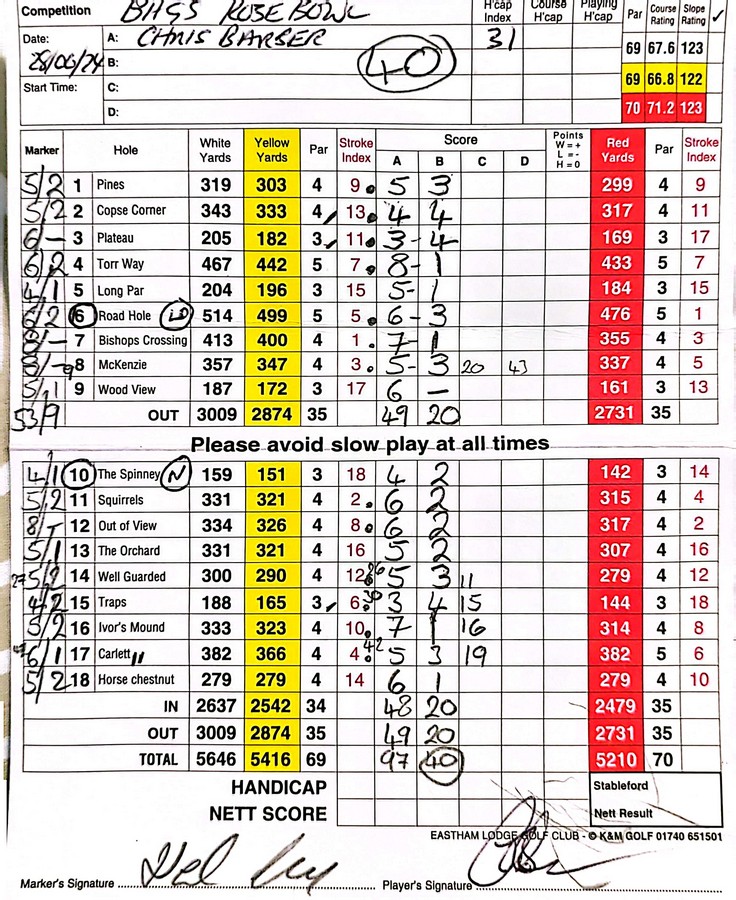 Competition BHGS ROSE BOWL H'cap Index Course H'cap Playing H'cap Par Course Rating Slope Rating ✓
Date: A: CHRIS BARBER 31 69 67.6 123
28/06/24 B: 40 69 66.8 122
Start Time: C:
D: 70 71.2 123
Marker Hole White Yards Yellow Yards Par Stroke Index Score Points W = + L = - H = 0 Red Yards Par Stroke Index
A B C D
5/2 1 Pines 319 303 4 9 5 3 299 4 9
5/2 2 Copse Corner 343 333 4 13 4 4 317 4 11
6/- 3 Plateau 205 182 3 11 3 - 4 169 3 17
6/2 4 Torr Way 467 442 5 7 8 - 1 433 5 7
4/1 5 Long Par 204 196 3 15 5 - 1 184 3 15
6 Road Hole LD 514 499 5 5 6 - 3 476 5 1
7 Bishops Crossing 413 400 4 1 7 1 355 4 3
8 McKenzie 357 347 4 3 5 - 3 20 43 337 4 5
5/1 9 Wood View 187 172 3 17 6 - 161 3 13
53/9 OUT 3009 2874 35 49 20 2731 35
Please avoid slow play at all times
4/1 10 The Spinney N 159 151 3 18 4 2 142 3 14
5/2 11 Squirrels 331 321 4 2 6 2 315 4 4
8/- 12 Out of View 334 326 4 8 6 2 317 4 2
5/1 13 The Orchard 331 321 4 16 5 2 307 4 16
5/2 14 Well Guarded 300 290 4 12 5 3 11 279 4 12
4/2 15 Traps 188 165 3 6 3 4 15 144 3 18
5/2 16 Ivor's Mound 333 323 4 10 7 1 16 314 4 8
6/1 17 Carlett 382 366 4 4 42 5 3 19 382 5 6
5/2 18 Horse chestnut 279 279 4 14 6 1 279 4 10
IN 2637 2542 34 48 20 2479 35
OUT 3009 2874 35 49 20 2731 35
TOTAL 5646 5416 69 97 40 5210 70
HANDICAP Stableford
NETT SCORE Nett Result
EASTHAM LODGE GOLF CLUB - © K&M GOLF 01740 651501
Marker's Signature Player's Signature